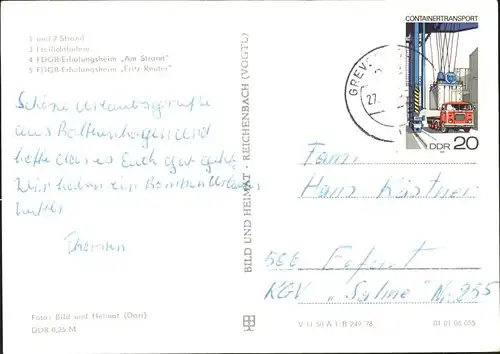 1 und 2 Strand
3 Freilichtbühne
4 FDGB-Erholungsheim „Am Strand"
5 FDGB-Erholungsheim „Fritz Reuter"
Schöne Urlaubsgrüße
aus Boltenhagen und
hoffe das es Euch gut geht.
Wir haben ein Bomben Urlaubs
wetter
Thorsten
Foto: Bild und Heimat (Darr)
DDR 0,25 M
BILD UND HEIMAT · REICHENBACH (VOGTL)
CONTAINERTRANSPORT
DDR 20
GREVES
27.
Fam.
Hans Kästner
Erfurt
KGV „Saline" Nr. 255
V 11 50 A 1/B 249/78
01 01 06 055